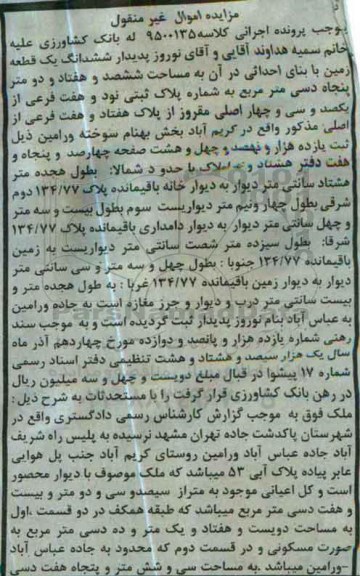 مزایده اموال غیر منقول
بموجب پرونده اجرائی کلاسه ۹۵۰۰۱۳۵ له بانک کشاورزی علیه
خانم سمیه هداوند آقایی و آقای نوروز پدیدار ششدانگ یک قطعه
زمین با بنای احداثی در آن به مساحت ششصد و هفتاد و دو متر
پنجاه دسی متر مربع به شماره پلاک ثبتی نود و هفت فرعی از
یکصد و سی و چهار اصلی مفروز از پلاک هفتاد و هفت فرعی از
اصلی مذکور واقع در کریم آباد بخش بهنام سوخته ورامین ذیل
ثبت یازده هزار و نهصد و چهل و هشت صفحه چهارصد و پنجاه و
هفت دفتر هشتاد و پنج املاک با حدود شمالا: بطول هجده متر
هشتاد سانتی متر دیوار به دیوار خانه باقیمانده پلاک ۱۳۴/۷۷ دوم
شرقی بطول چهار ونیم متر دیواریست سوم بطول بیست و سه متر
و چهل سانتی متر دیوار به دیوار دامداری باقیمانده پلاک ۱۳۴/۷۷
شرقا: بطول سیزده متر شصت سانتی متر دیواریست به زمین
باقیمانده ۱۳۴/۷۷ جنوبا: بطول چهل و سه متر و سی سانتی متر
دیوار به دیوار زمین باقیمانده ۱۳۴/۷۷ غربا: به طول هجده متر و
بیست سانتی متر درب و دیوار و جرز مغازه است به جاده ورامین
به عباس آباد بنام نوروز پدیدار ثبت گردیده است و به موجب سند
رهنی شماره یازده هزار و پانصد و دوازده مورخ چهاردهم آذر ماه
سال یک هزار سیصد و هشتاد و هشت تنظیمی دفتر اسناد رسمی
شماره ۱۷ پیشوا در قبال مبلغ دویست و چهل و سه میلیون ریال
در رهن بانک کشاورزی قرار گرفت را با مستحدثات به شرح ذیل:
ملک فوق به موجب گزارش کارشناس رسمی دادگستری واقع در
شهرستان پاکدشت جاده تهران مشهد نرسیده به پلیس راه شریف
آباد جاده عباس آباد ورامین روستای کریم آباد جنب پل هوایی
عابر پیاده پلاک آبی ۵۳ میباشد که ملک موصوف با دیوار محصور
است و کل اعیانی موجود به متراژ سیصدو سی و دو متر و بیست
و هفت دسی متر مربع میباشد که طبقه همکف در دو قسمت ،اول
به مساحت دویست و هفتاد و یک متر و ده دسی متر مربع به
صورت مسکونی و در قسمت دوم که محدود به جاده عباس آباد
-ورامین میباشد .به مساحت سی و شش متر و پنجاه هفت دسی